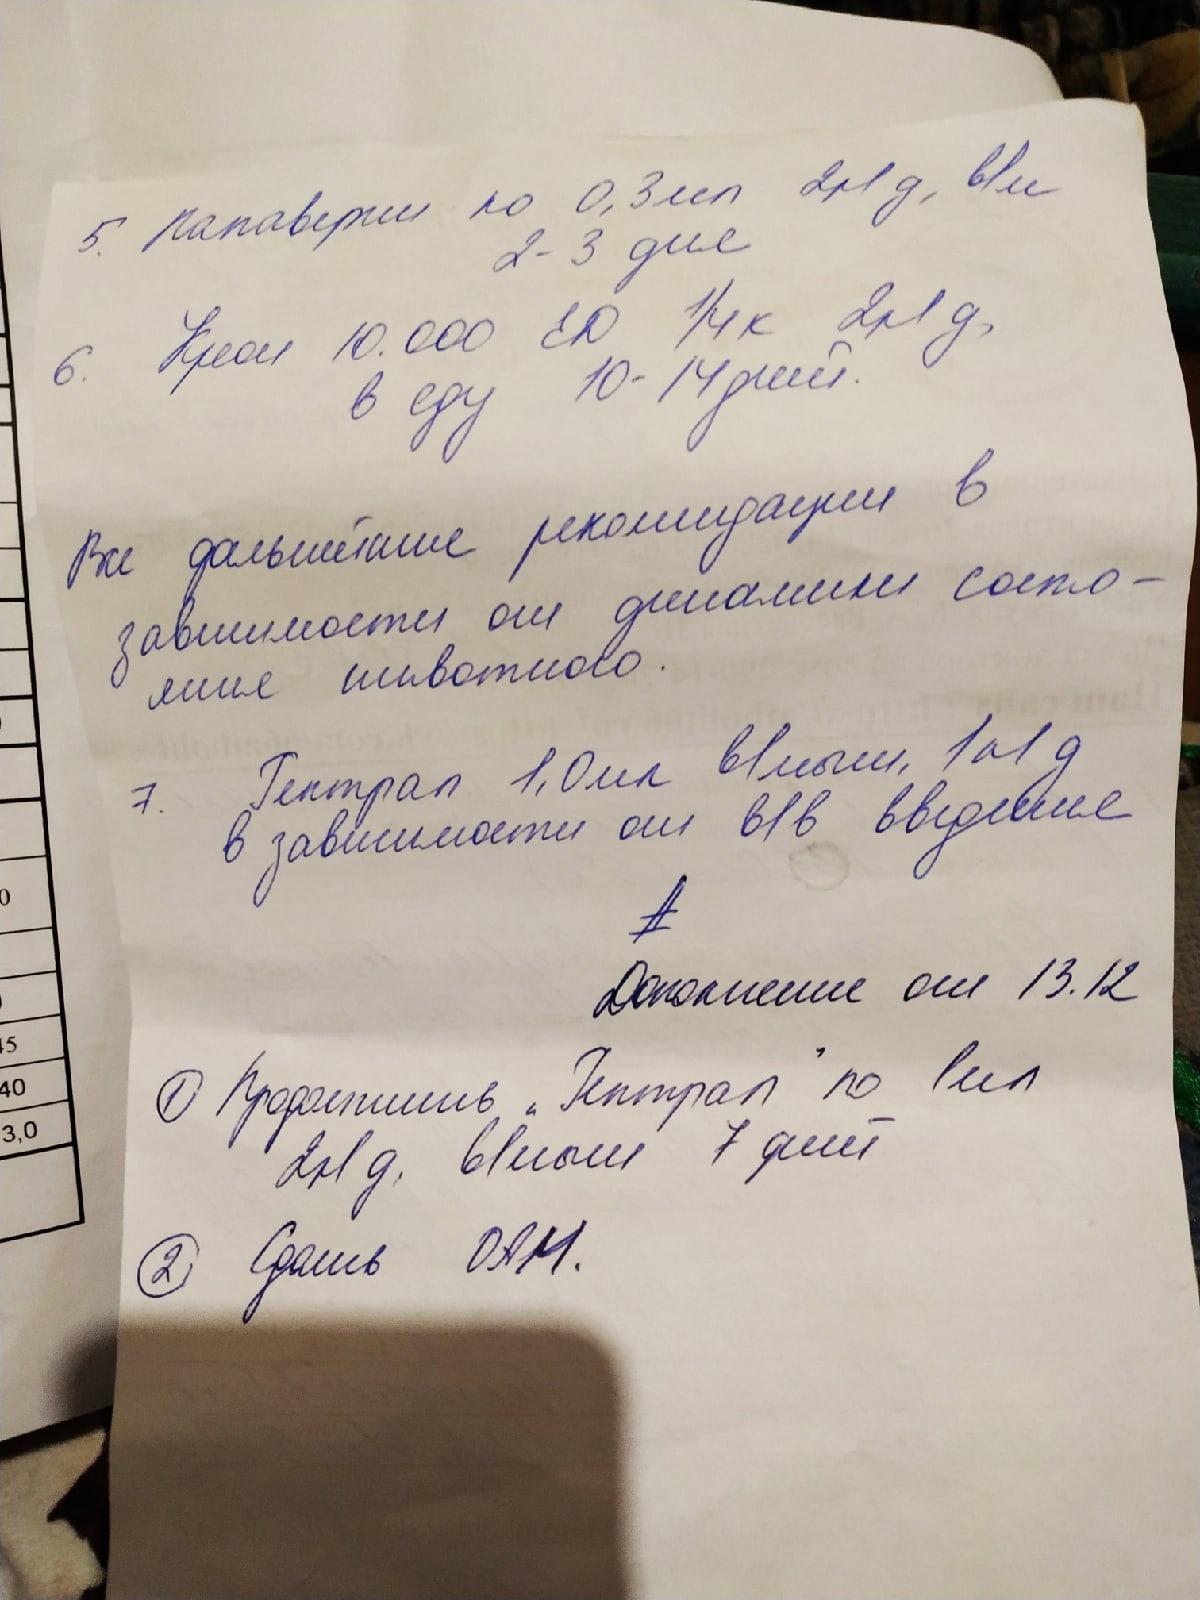 5. Папаверин по 0,3мл 2р/д, в/м
2-3 дня
6. Креон 10.000 ЕД 1/4к 2р/д,
в еду 10-14дней.
Все дальнейшие рекомендации в
зависимости от динамики состо-
яния животного.
7. Гептрал 1,0мл в/мыш, 1р/д
в зависимости от в/в введения
Дополнение от 13.12
① Продолжить "Гептрал" по 1мл
2р/д, в/мыш 7 дней
② Сдать ОАМ.
0
45
40
3,0